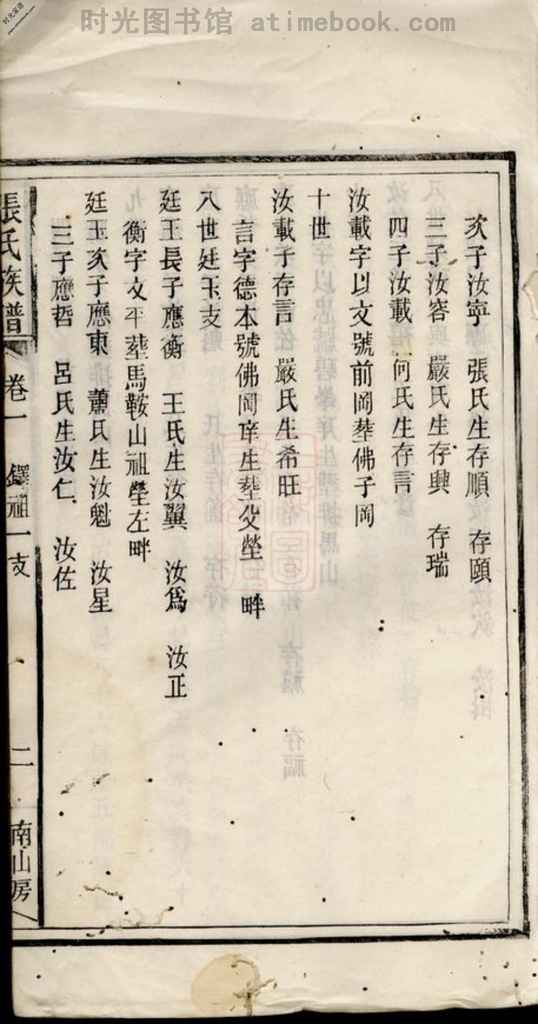 时光图书馆 atimebook.com
次子汝寧 張氏生存順 存頤
三子汝容 嚴氏生存興 存瑞
四子汝載 何氏生存言
汝載字以文號前岡塟佛子岡
十世
汝載子存言 嚴氏生希旺
言字德本號佛岡庠生塟父塋 畔
八世廷玉支
廷玉長子應衡 王氏生汝翼 汝爲 汝正
衡字文平塟馬鞍山祖塋左畔
廷玉次子應東 蕭氏生汝魁 汝星
三子應哲 呂氏生汝仁 汝佐
張氏族譜 卷一 鐸祖一支 二 南山房